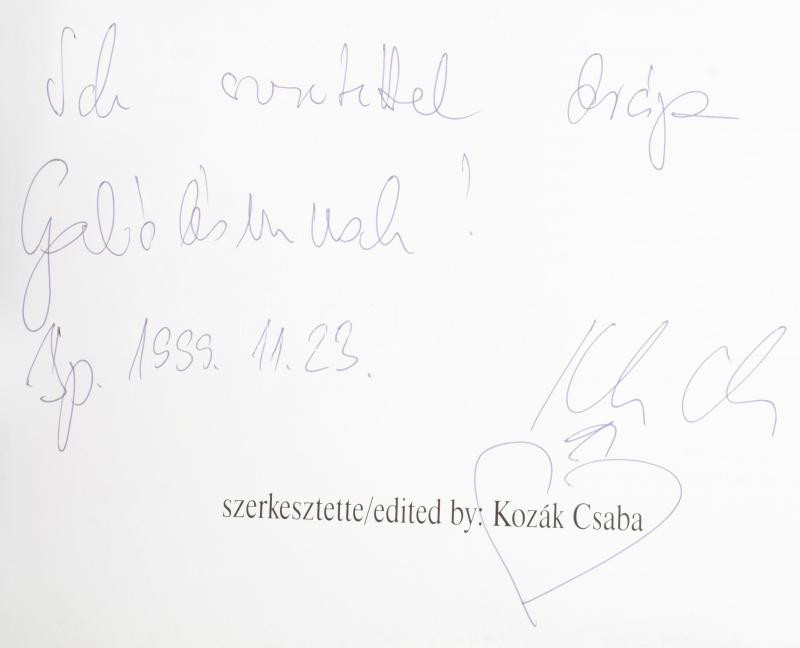 Sok szeretettel drága
Gabócámnak!
Bp. 1999. 11. 23.
szerkesztette/edited by: Kozák Csaba